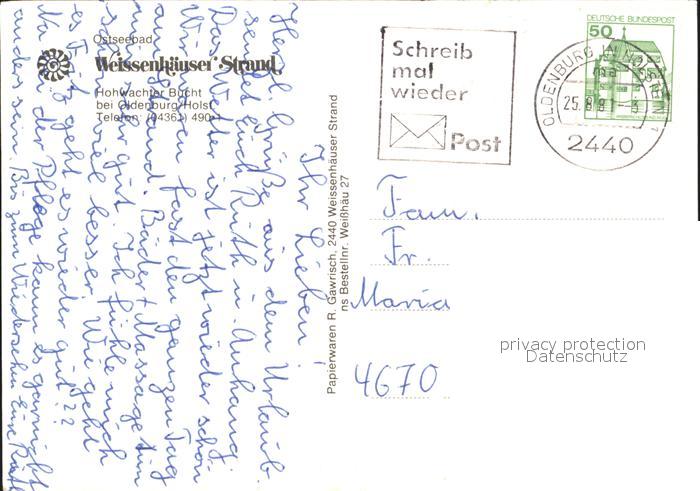 Ostseebad
Weissenhäuser Strand
Hohwachter Bucht
bei Oldenburg Holst
Telefon: (04361) 490-1
Ihr Lieben!
Herzl. Grüße aus dem Urlaub
sendet Euch Ruth u. Anhang.
Das Wetter ist jetzt wieder schön
wir sind fast den ganzen Tag
am Strand. Bäder + Massage tun
mir sehr gut. Ich fühle mich
schon viel besser. Wie geht
es Fritz geht es wieder gut??
In der Pflege kann es garnicht
anders sein. Bis zum Wiedersehn Eure Ruth
Papierwaren R. Gawrisch, 2440 Weissenhäuser Strand
ns Bestellnr. Weißhäu 27
Schreib
mal
wieder
Post
DEUTSCHE BUNDESPOST
50
OLDENBURG IN HOLST
25.8.81-3
2440
Fam.
Fr.
Maria
4670
privacy protection
Datenschutz